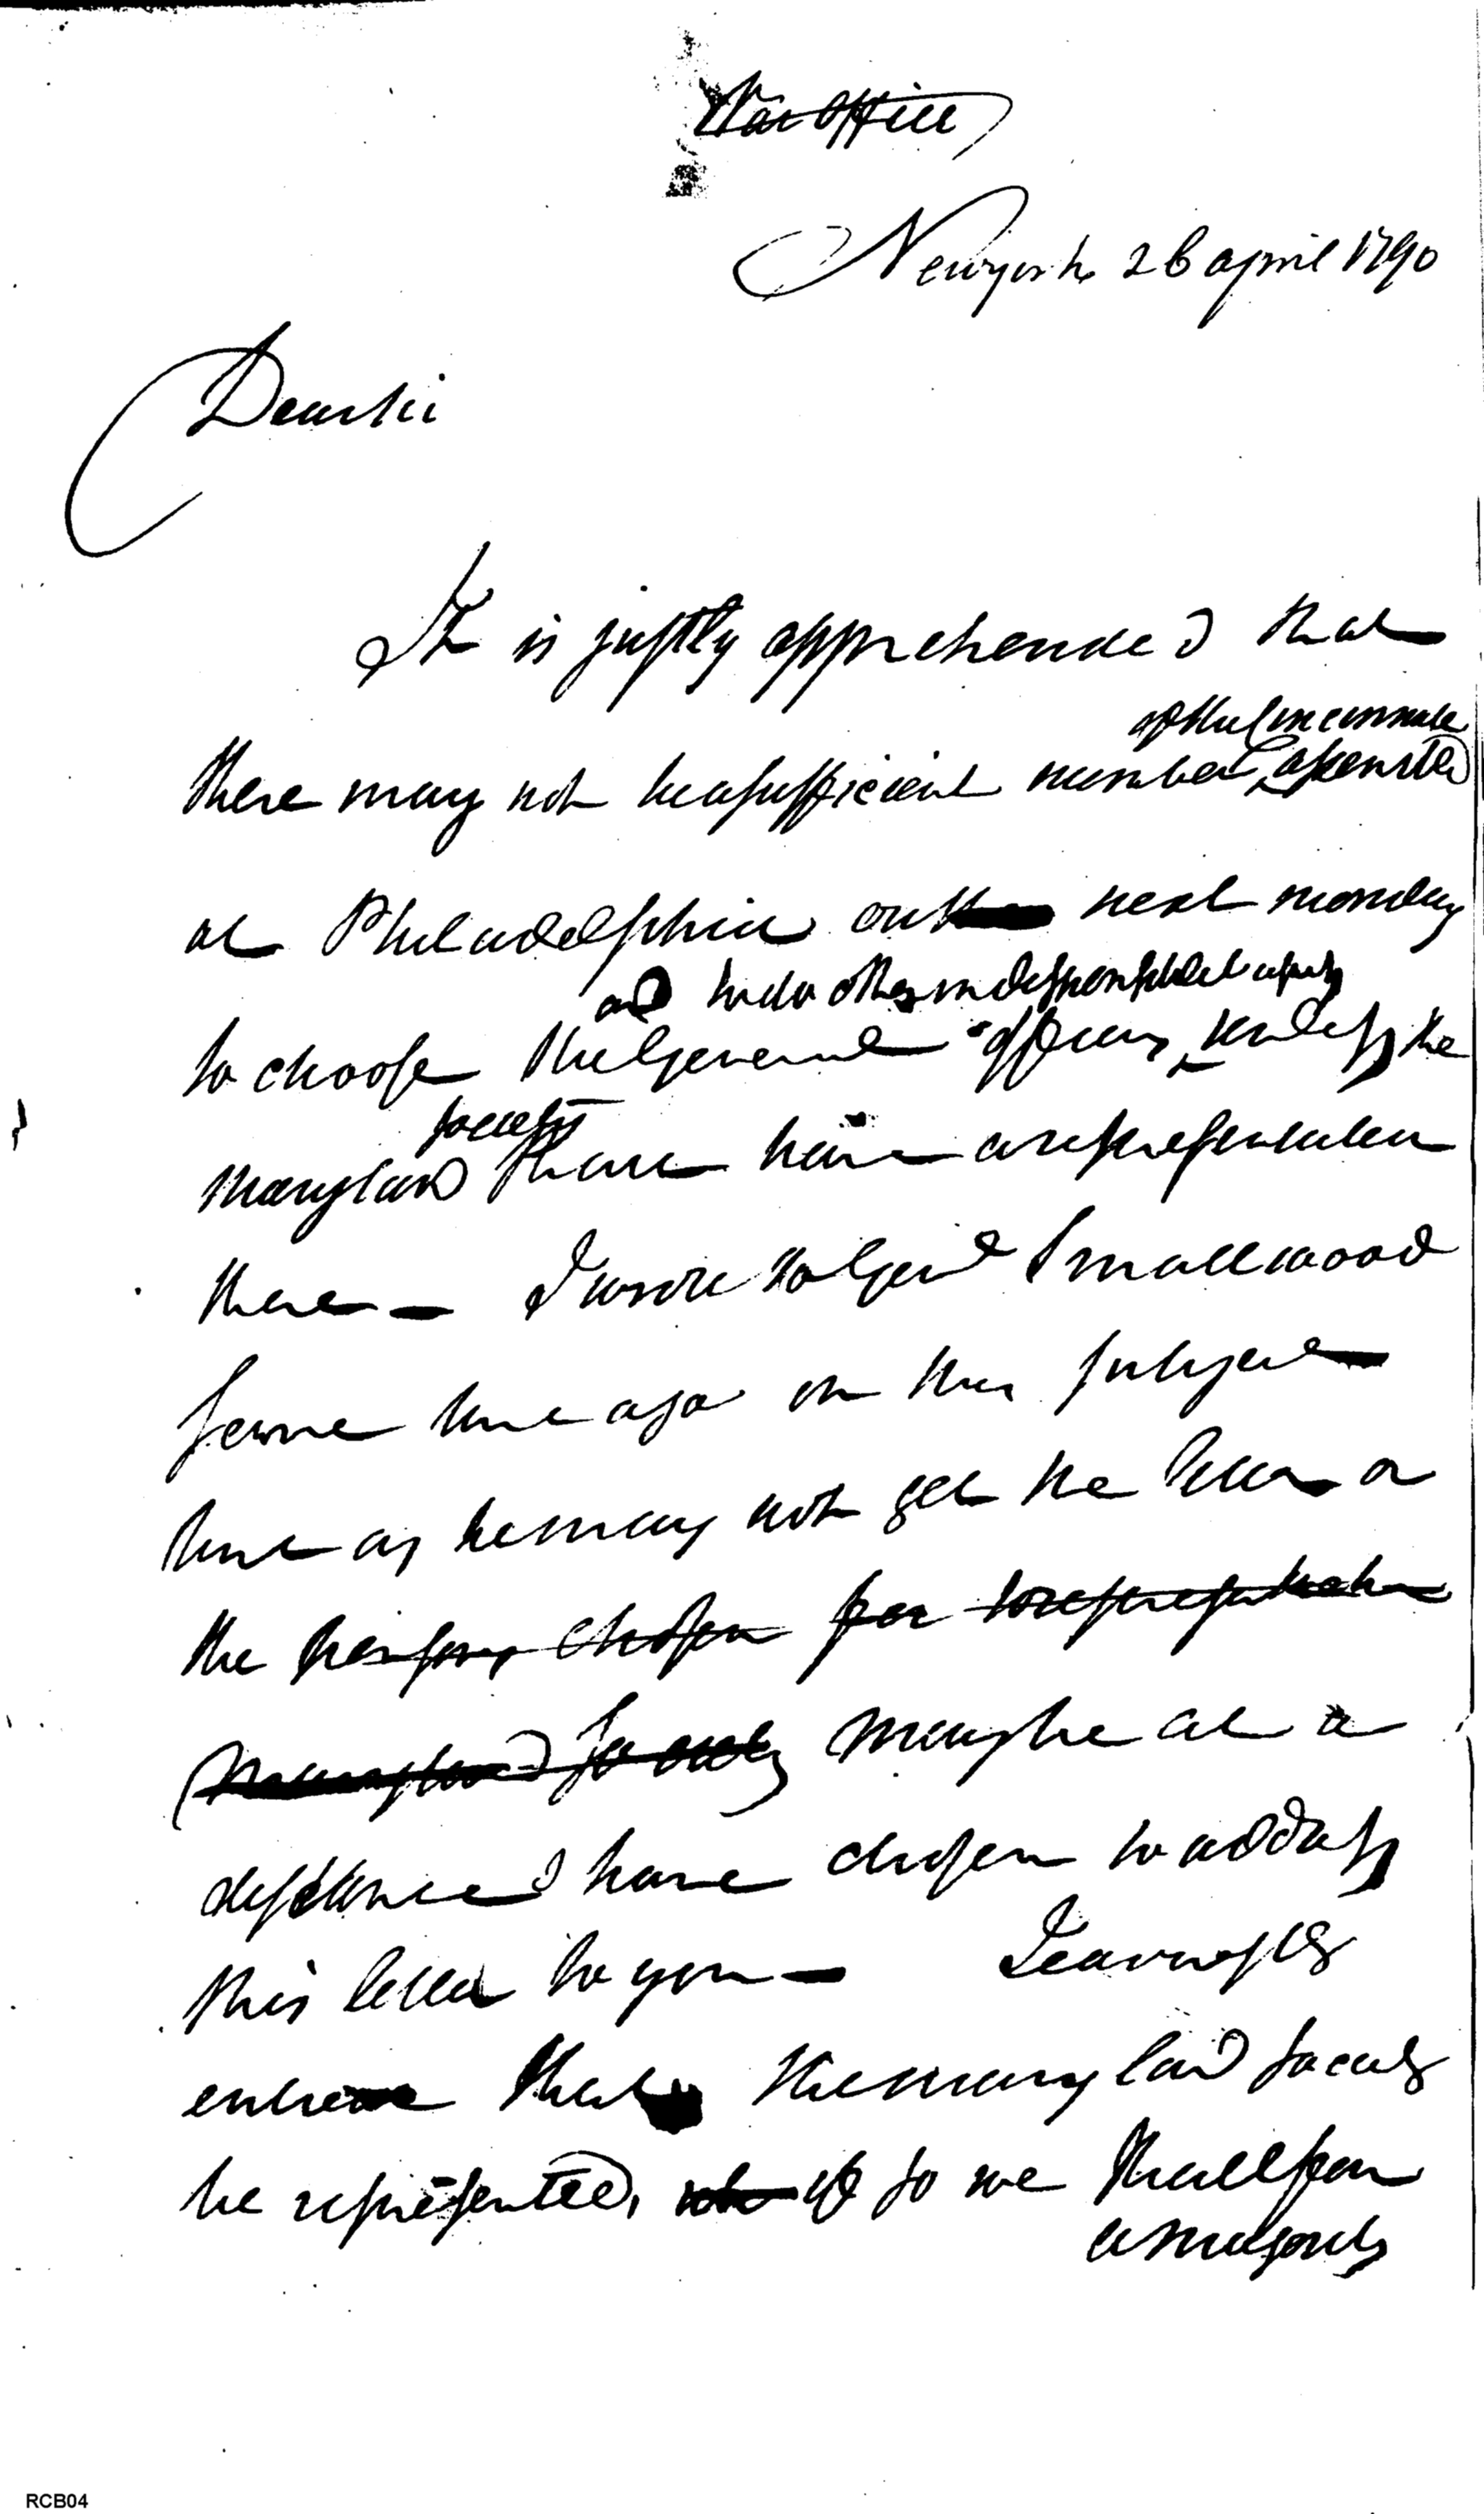 War office
New york 26 april 1790
Dear sir
It is justly apprehended that
of the Cincinnati
there may not be a sufficient number assembled
at Philadelphia on the next monday
and to do other indispensible acts
to choose the General officers, unless the
society
maryland shall have a representation
there — I wrote to Genl Smallwood
some time ago on this subject
but as he may not get the letter or
the persons chosen for to represent the
maryland society may be at a
distance I have chosen to address
this letter to you —
that the maryland society
be represented, if so we shall